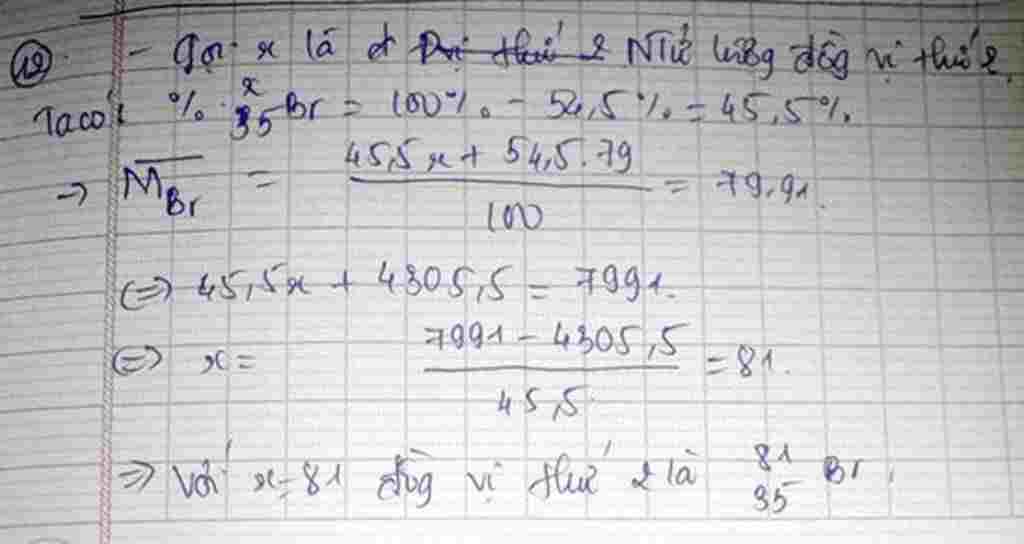 12 - Gọi x là Ntử lượng đồng vị thứ 2.
Ta có: % ˣ₃₅Br = 100% - 54,5% = 45,5%.
→ M̅_Br = (45,5x + 54,5.79)/100 = 79,91.
(=) 45,5x + 4305,5 = 7991.
(=) x = (7991 - 4305,5)/45,5 = 81.
=) Với x = 81 đồng vị thứ 2 là ⁸¹₃₅Br.